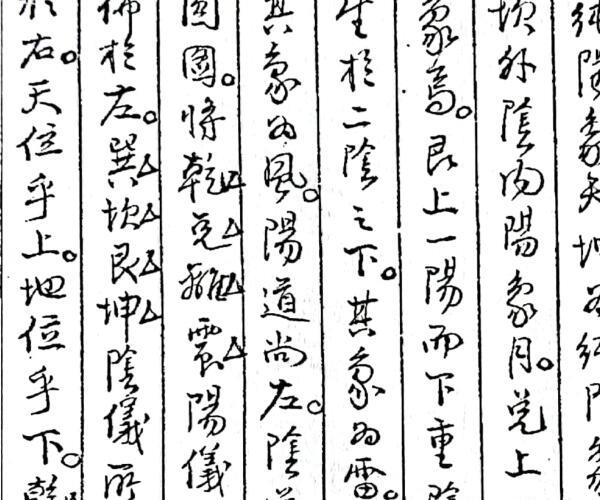 純陽象天。地為純陰象
坎外陰內陽象月。兌上
象焉。艮上一陽而下重陰
生於二陰之下。其象為雷。
其象為風。陽道尚左。陰道
圓圖。將乾兌離震陽儀
佈於左。巽坎艮坤陰儀所
於右。天位乎上。地位乎下。乾